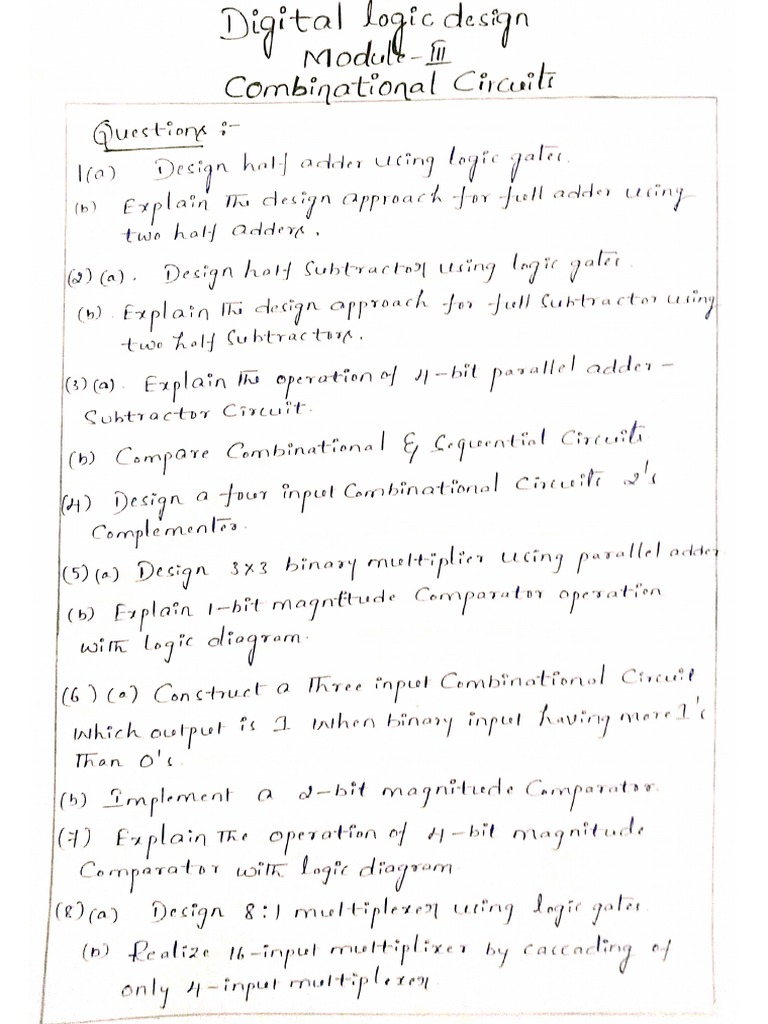 Digital logic design
Module-III
Combinational Circuits
Questions :-
1(a) Design half adder using logic gates.
(b) Explain The design approach for full adder using
two half adders.
(2) (a). Design half Subtractor using logic gates.
(b). Explain The design approach for full Subtractor using
two half Subtractors.
(3) (a). Explain The operation of 4-bit parallel adder-
Subtractor Circuit.
(b) Compare Combinational & Sequential Circuits
(4) Design a four input Combinational Circuits 2's
Complementer.
(5) (a) Design 3x3 binary multiplier using parallel adder
(b) Explain 1-bit magntitude Comparator operation
with logic diagram.
(6) (a) Construct a Three input Combinational Circuit
Which output is 1 when binary input having more 1's
Than 0's.
(b) Implement a 2-bit magnitude Comparator.
(7) Explain The operation of 4-bit magnitude
Comparator with logic diagram.
(8) (a) Design 8:1 multiplexer using logic gates.
(b) Realize 16-input multiplixer by cascading of
only 4-input multiplexer.